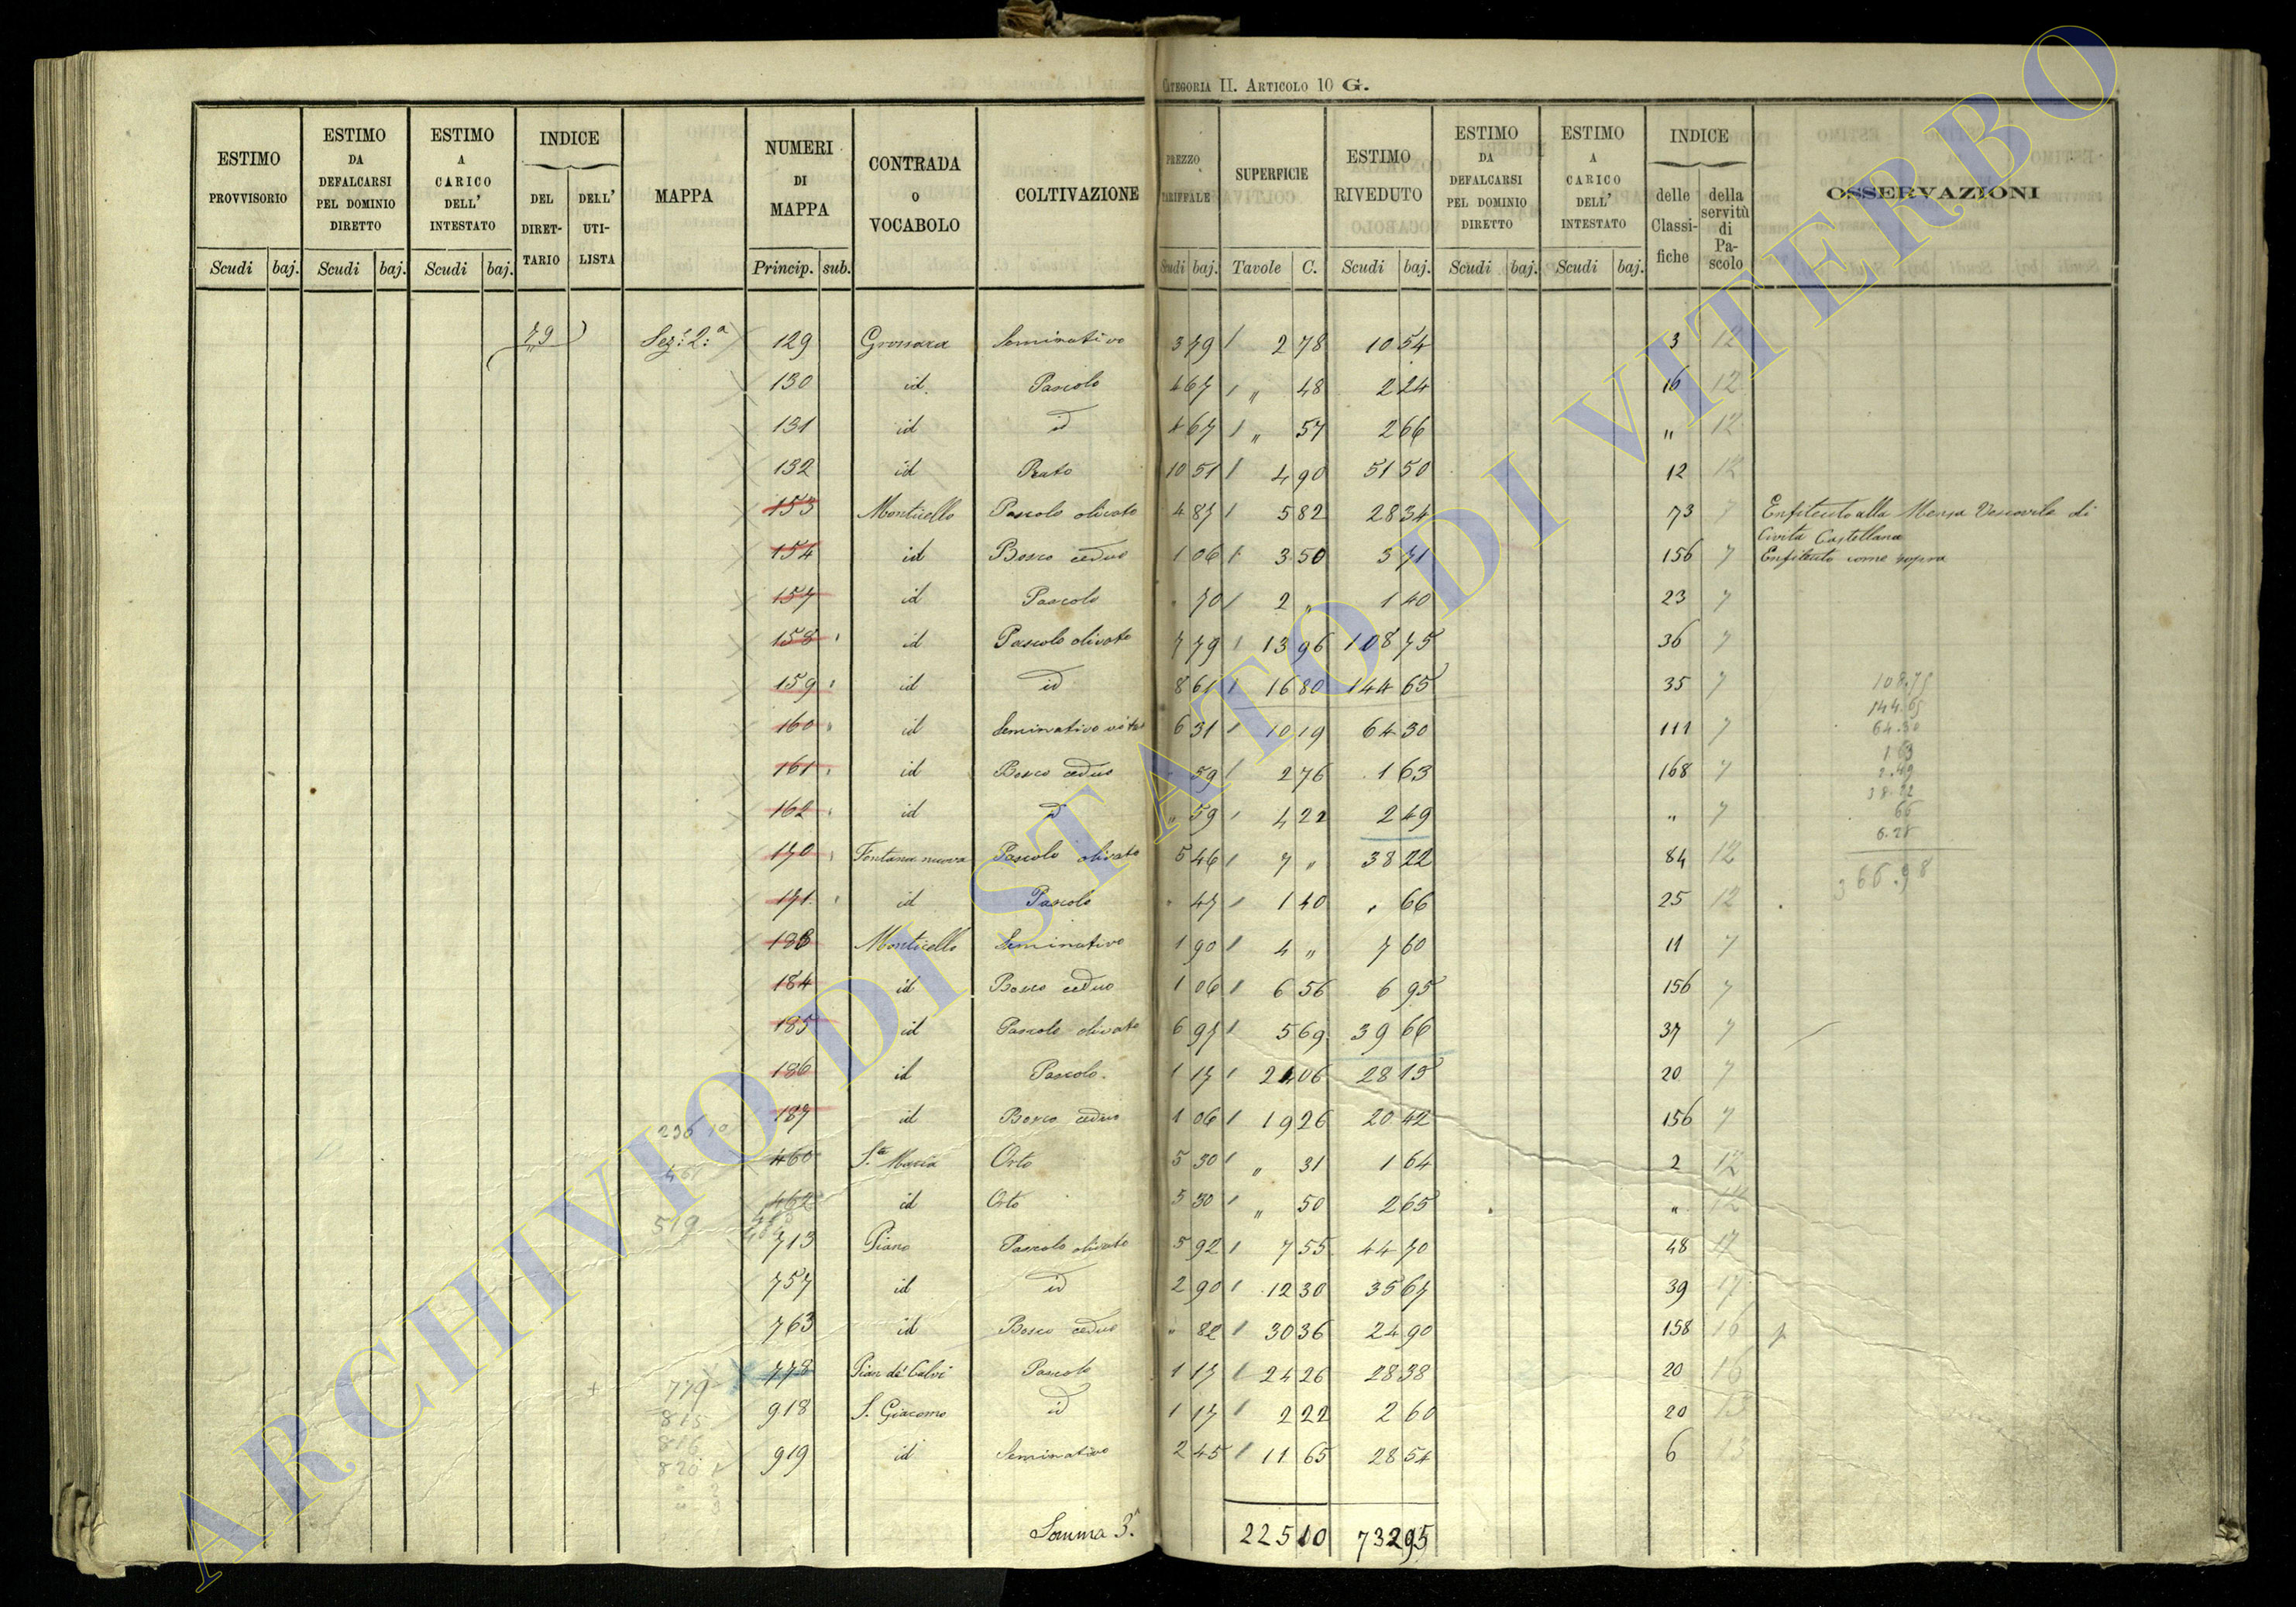 CATEGORIA II. ARTICOLO 10 G.
ESTIMO PROVVISORIO | ESTIMO DA DEFALCARSI PEL DOMINIO DIRETTO | ESTIMO A CARICO DELL' INTESTATO | INDICE DEL DIRET-TARIO | DELL' UTI-LISTA | MAPPA | NUMERI DI MAPPA | CONTRADA o VOCABOLO | COLTIVAZIONE | PREZZO TARIFFALE | SUPERFICIE | ESTIMO RIVEDUTO | ESTIMO DA DEFALCARSI PEL DOMINIO DIRETTO | ESTIMO A CARICO DELL' INTESTATO | INDICE delle Classi-fiche | della servitù di Pa-scolo | OSSERVAZIONI
Scudi baj. Scudi baj. Scudi baj. Princip. sub. Scudi baj. Tavole C. Scudi baj. Scudi baj. Scudi baj.
79 Sez: 2:a 129 Grossara Seminativo 3 79 2 78 10 54 3 12
130 id. Pascolo 4 67 " 48 2 24 16 12
131 id id 4 67 " 57 2 66 " 12
132 id Prato 10 51 4 90 51 50 12 12
153 Monticello Pascolo olivato 4 87 5 82 28 34 73 7 Enfiteuto alla Mensa Vescovile di
Civita Castellana
154 id Bosco ceduo 1 06 3 50 3 71 156 7 Enfiteuto come sopra
157 id Pascolo " 70 2 " 1 40 23 7
158 id Pascolo olivato 7 79 13 96 108 75 36 7
159 id id 8 61 16 80 144 65 35 7 108.75
144.65
160 id Seminativo vitato 6 31 10 19 64 30 111 7 64.30
161 id Bosco ceduo 59 2 76 1 63 168 7 1 63
2.49
38.22
162 id id " 59 4 22 2 49 " 7 66
6.28
170 Fontana nuova Pascolo olivato 5 46 7 " 38 22 84 12
366.98
171 id Pascolo " 47 1 40 " 66 25 12
183 Monticello Seminativo 1 90 4 " 7 60 11 7
184 id Bosco ceduo 1 06 6 56 6 95 156 7
185 id Pascolo olivato 6 97 5 69 39 66 37 7
186 id Pascolo 1 17 24 06 28 15 20 7
187 id Bosco ceduo 1 06 19 26 20 42 156 7
236
460 S.ta Maria Orto 5 30 " 31 1 64 2 12
461
462 id Orto 5 30 " 50 2 65 " 12
519
713 Piano Pascolo olivato 5 92 7 55 44 70 48 17
757 id id 2 90 12 30 35 67 39 17
763 id Bosco ceduo " 82 30 36 24 90 158 16
779 778 Pian de' Calvi Pascolo 1 17 24 26 28 38 20 16
815 918 S. Giacomo id 1 17 2 22 2 60 20 13
816
820 919 id Seminativo 2 45 11 65 28 54 6 13
" 2
" 3
Somma 3.a 225 10 732 95
ARCHIVIO DI STATO DI VITERBO